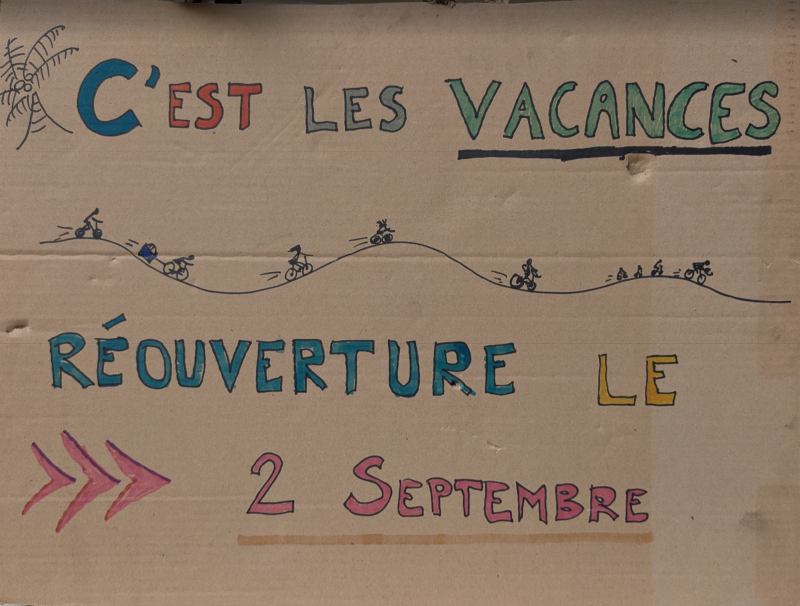 C'EST LES VACANCES
RÉOUVERTURE LE
2 SEPTEMBRE